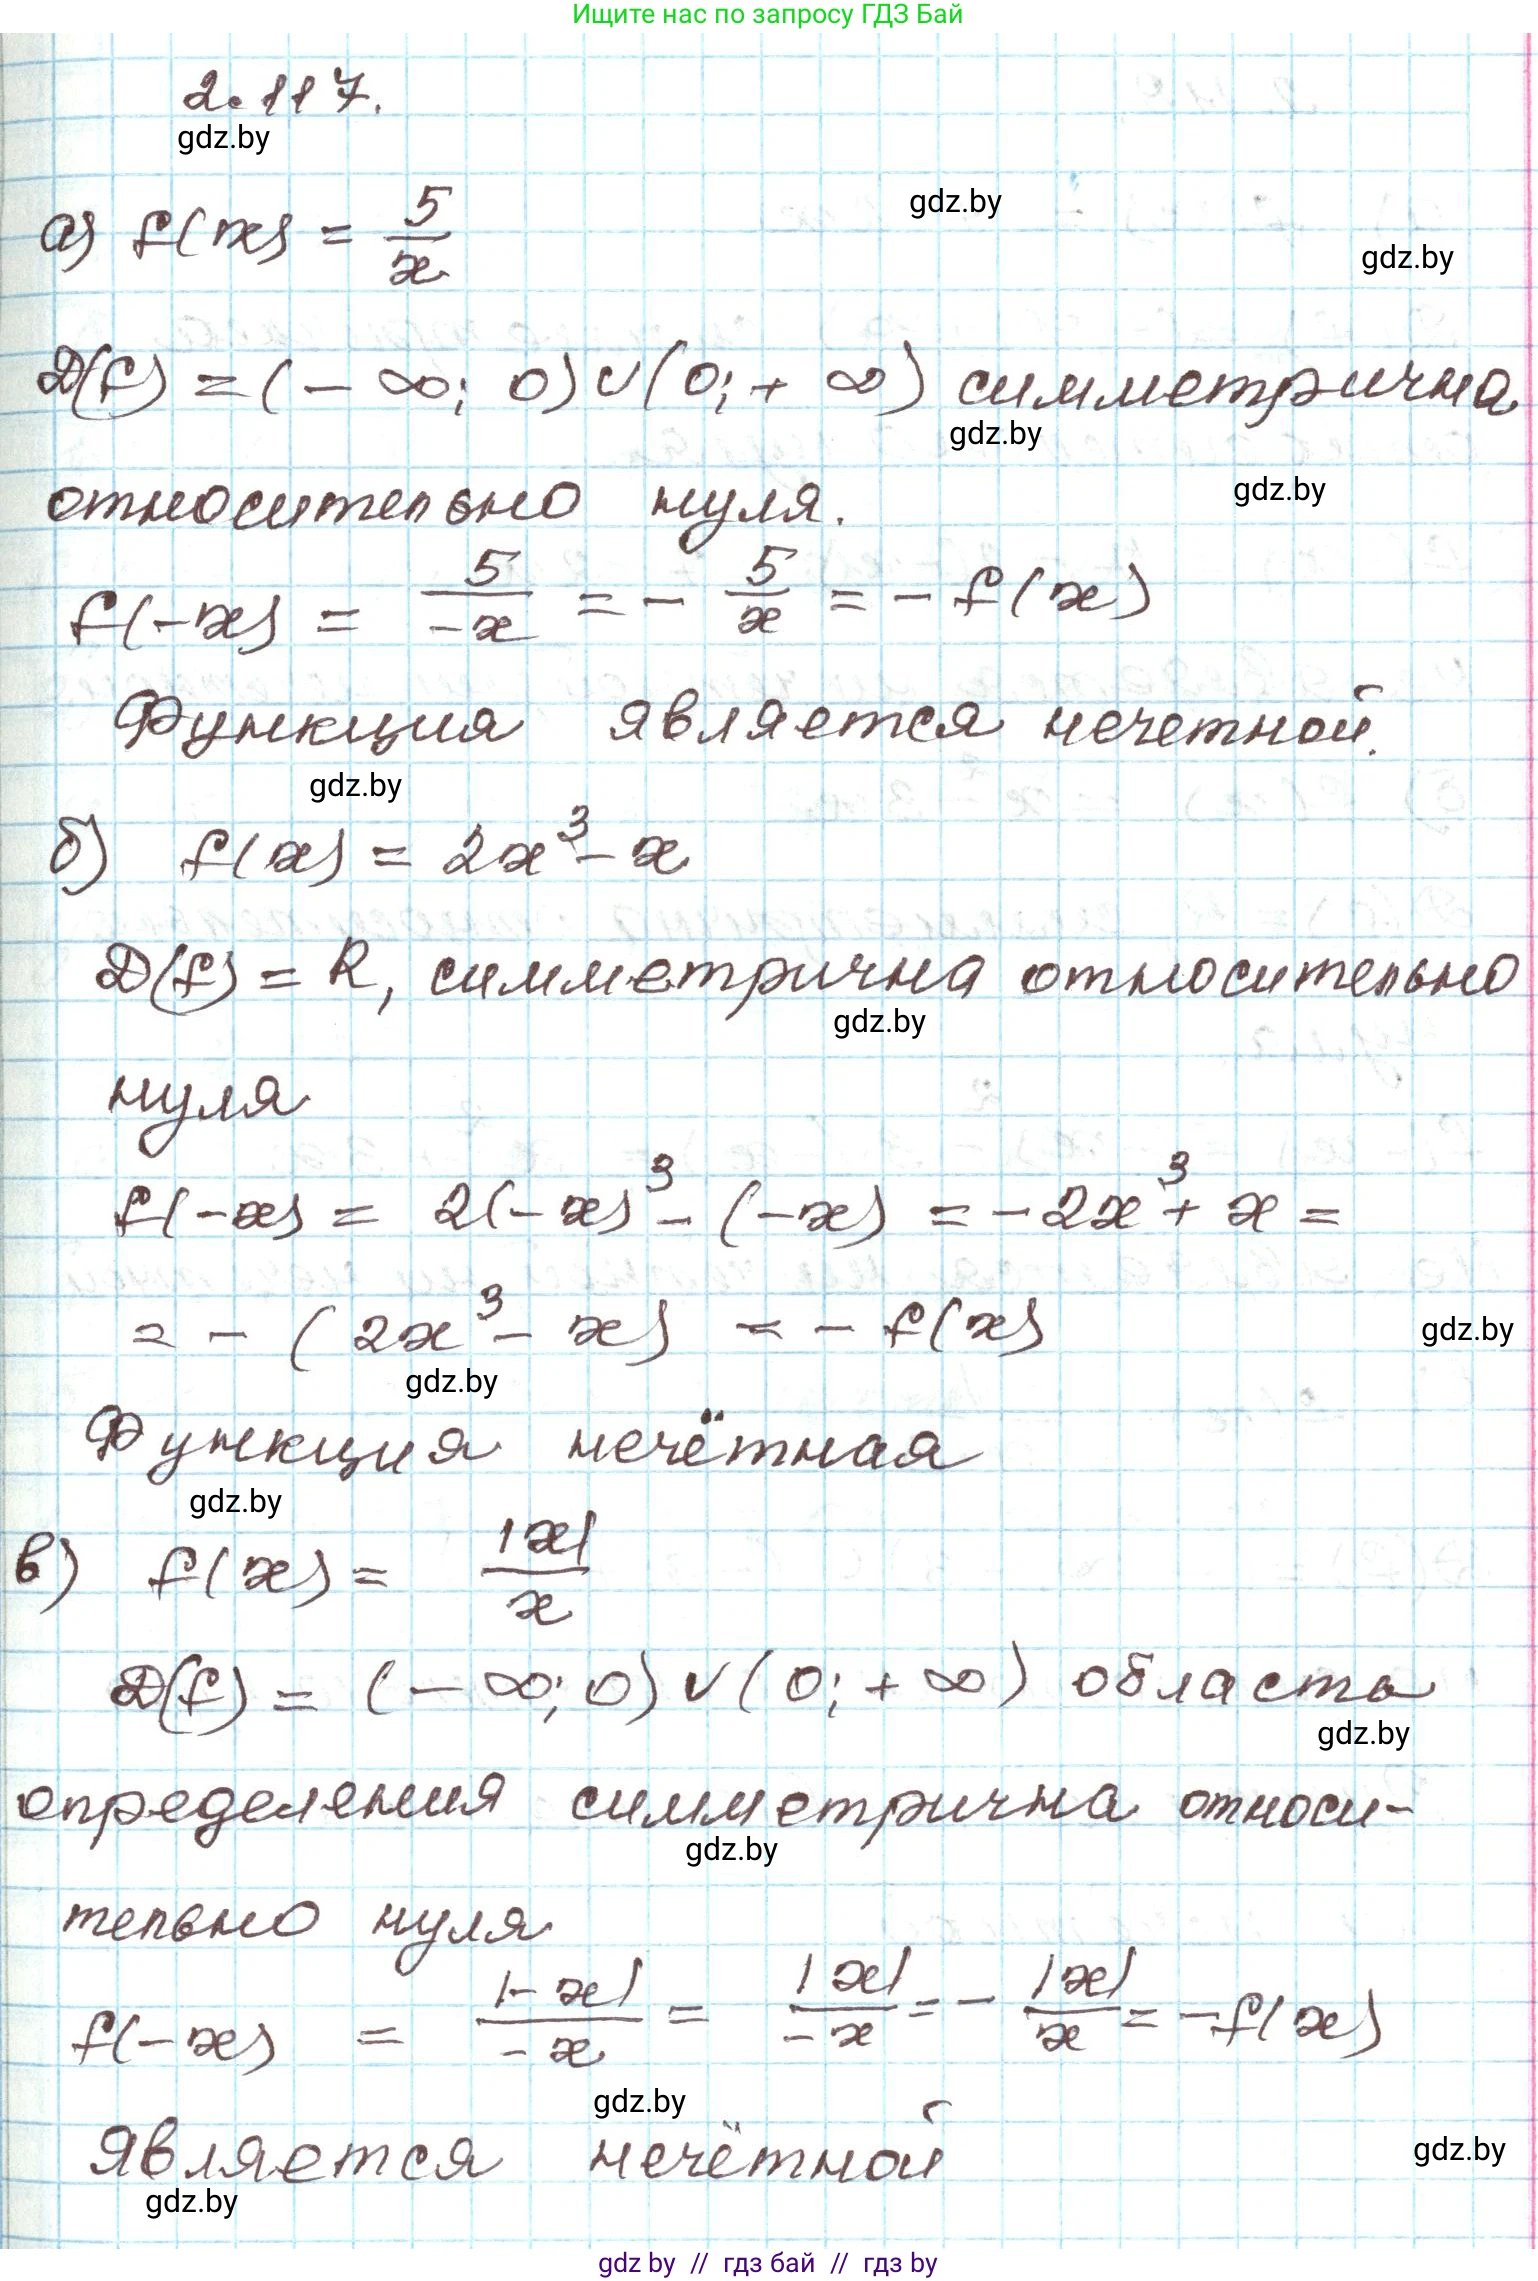 Ищите нас по запросу ГДЗ Бай
2.117.
gdz.by
а) f(x) = 5/x
gdz.by
gdz.by
D(f) = (- ∞; 0) ∪ (0; + ∞) симметрична
gdz.by
относительно нуля.
gdz.by
f(-x) = 5/-x = - 5/x = - f(x)
Функция является нечетной.
gdz.by
б) f(x) = 2x³ - x
D(f) = R, симметрична относительно
gdz.by
нуля
f(-x) = 2(-x)³ - (-x) = -2x³ + x =
= - (2x³ - x) = - f(x)
gdz.by
gdz.by
Функция нечётная
gdz.by
в) f(x) = |x|/x
D(f) = (- ∞; 0) ∪ (0; + ∞) область
gdz.by
определения симметрична относи-
gdz.by
тельно нуля
f(-x) = |-x|/-x = |x|/-x = - |x|/x = -f(x)
gdz.by
является нечётной
gdz.by
gdz.by
gdz by // гдз бай // гдз by